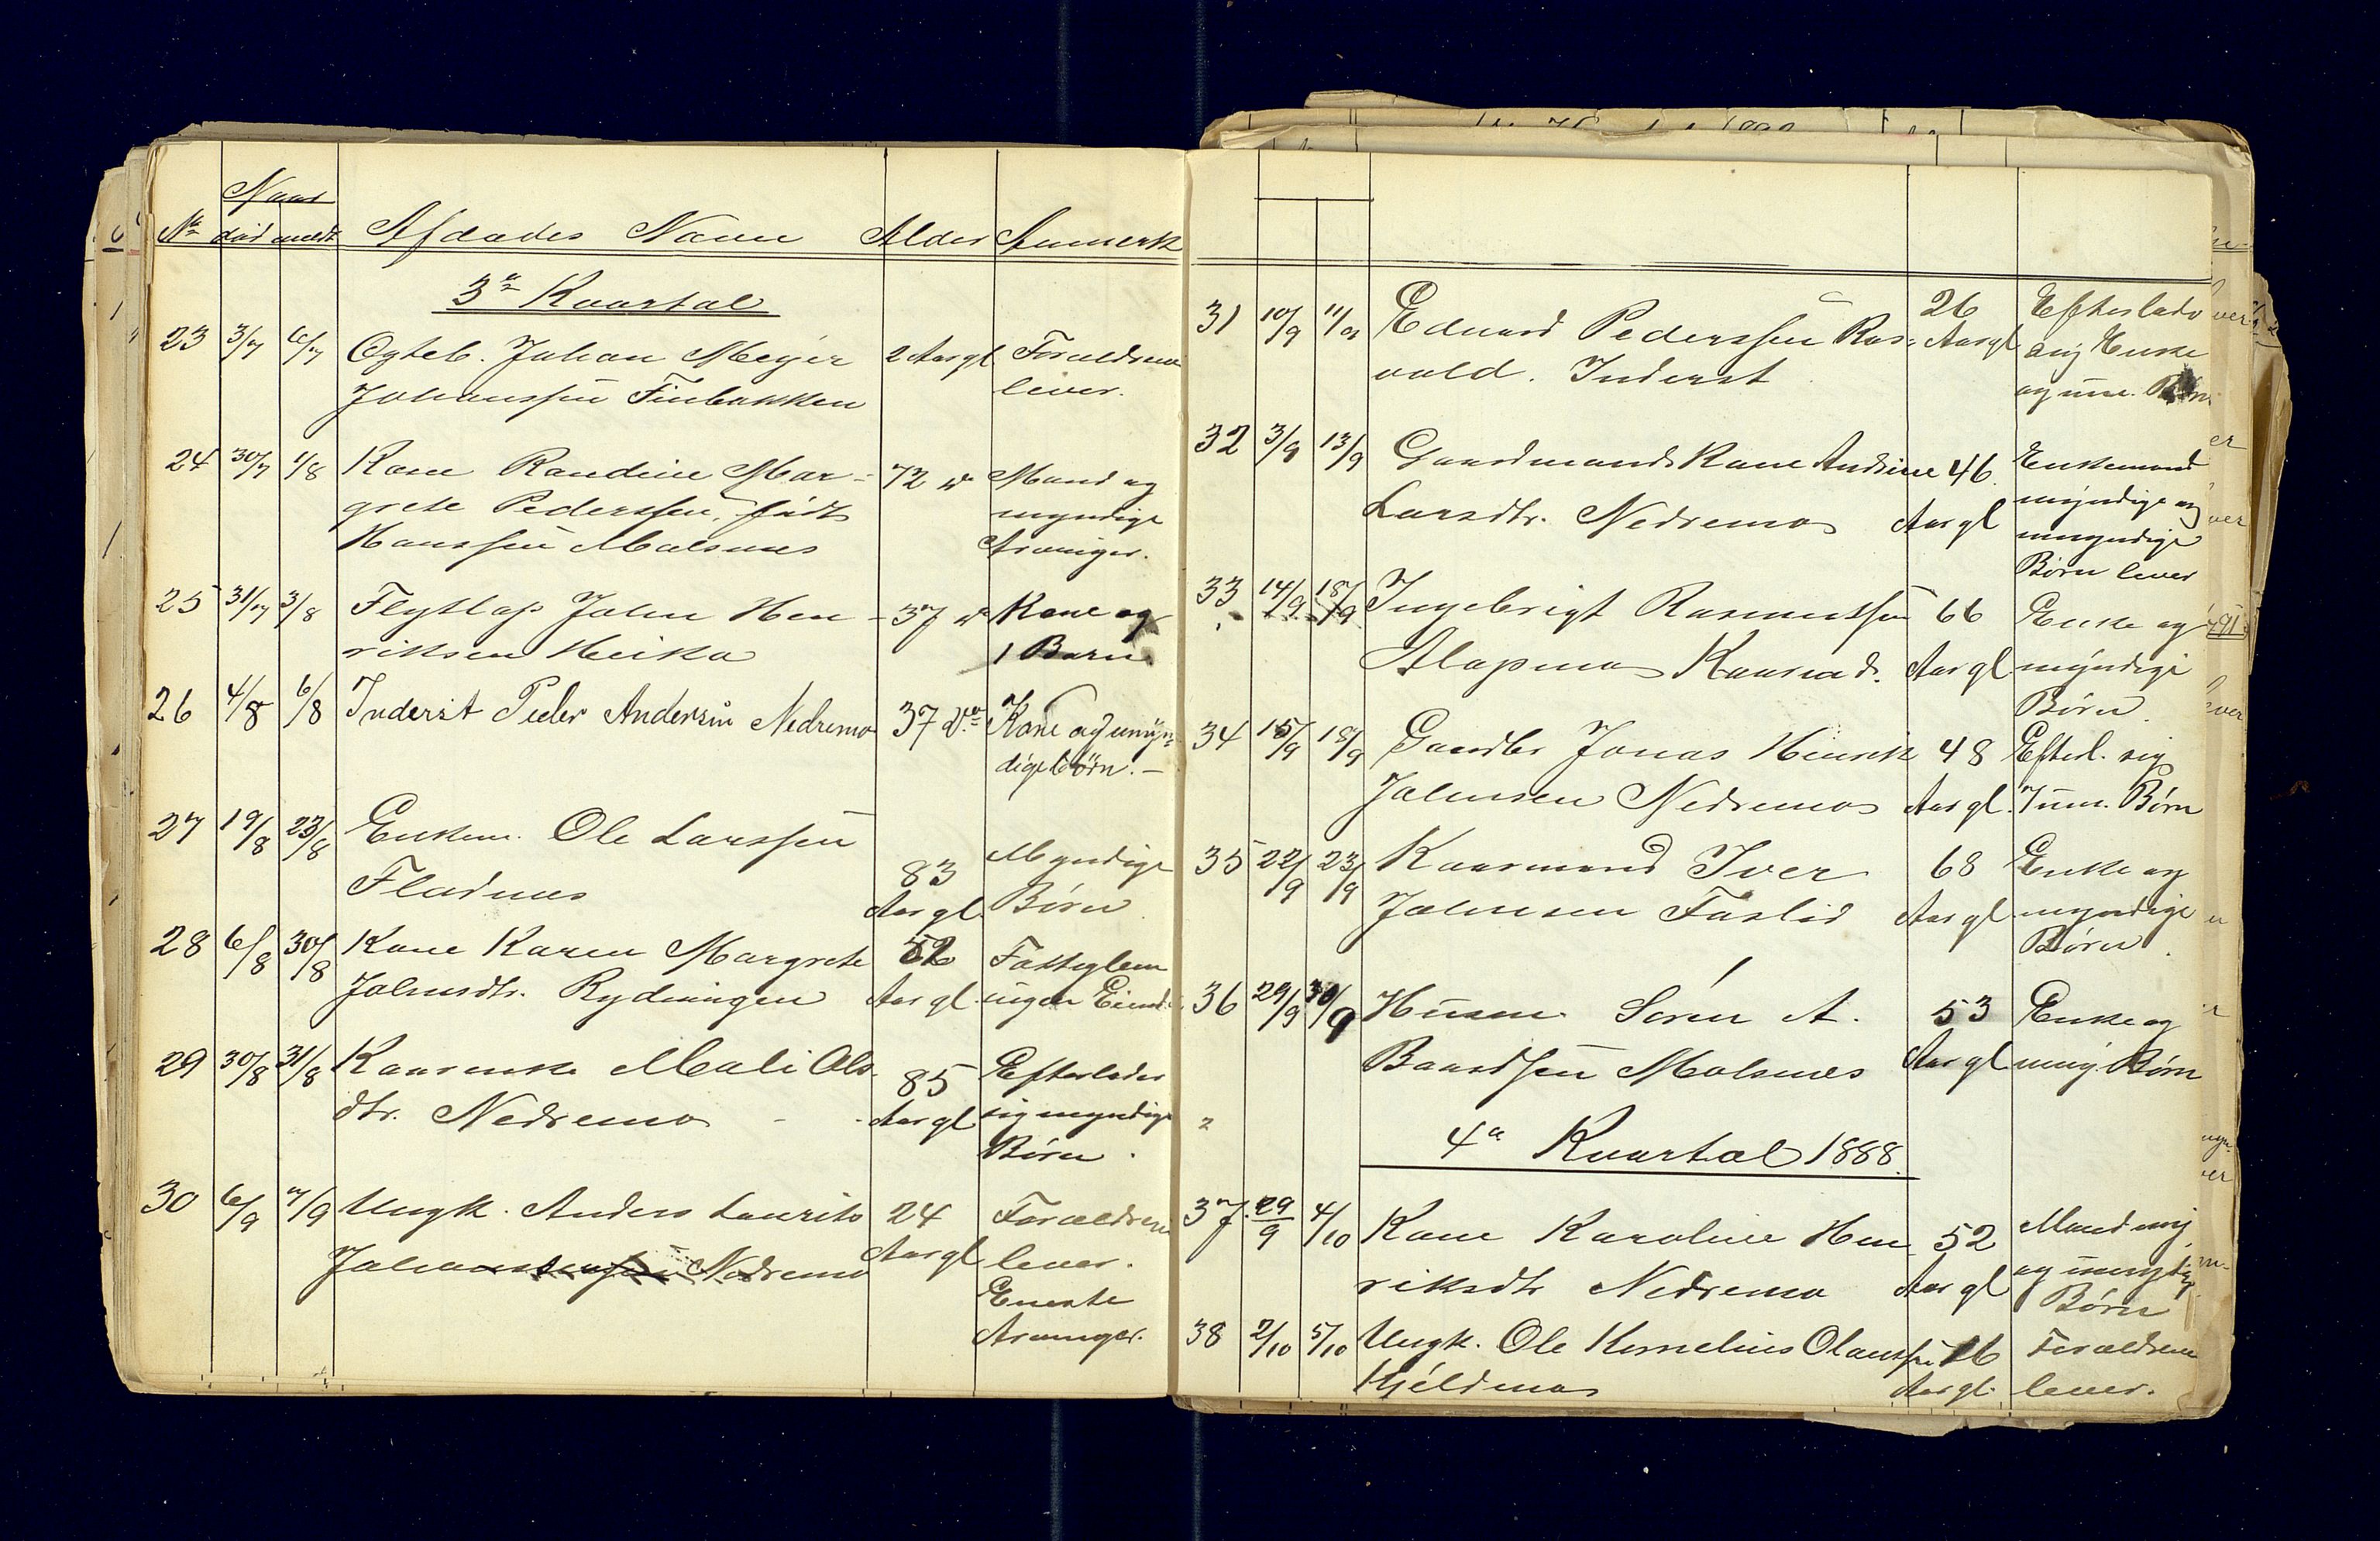 Naar
No død meldt Afdødes Navn Alder Anmerk
3die Kvartal
23 3/7 6/7 Ægteb. Johan Meyer 2 Aar gl. Forældrene
Johanssen Finbakken lever.
24 30/7 1/8 Kone Randine Mar- 72 do Mand og
grete Pederssen, født myndige
Hanssen Malsnes Arvinger.
25 31/7 3/8 Flytlap John Hen- 37 do Kone og
riksen Heika 1 Barn.
26 4/8 6/8 Inderst Peder Andersen Nedremo 37 do Kone og umyn-
dige børn. —
27 19/8 23/8 Enkem. Ole Larssen 83 Myndige
Fladnes Aar gl. Børn
28 6/8 30/8 Kone Karen Margrete 52 Fattiglem
Johnsdtr. Rydningen Aar gl. ingen Eiend.
29 30/8 31/8 Kaarenke Mali Ols- 85 Efterlader
dtr. Nedremo Aar gl sig myndige
Børn.
30 6/9 7/9 Ungk. Anders Laurits 24 Forældrene
Nedremo Aar gl lever.
Eneste
Arvinger.
31 10/9 11/9 Eduard Pederssen Ros- 26 Efterlader
vold. Inderst Aar gl. sig Enke
og um. Børn
32 3/9 13/9 Gaardmands Kone Andrine 46 Enkemand
Larsdtr. Nedremo Aar gl myndige og
umyndige
Børn lever
33 14/9 18/9 Ingebrigt Rasmussen 66 Enke og
Alapmo Kaarmd. Aar gl. myndige
Børn.
34 15/9 18/9 Gaardbr Jonas Henrik 48 Efterl. sig
Johnsen Nedremo Aar gl. 7 um. Børn
35 22/9 23/9 Kaarmand Iver 68 Enke og
Johnsen Foslid Aar gl. myndige
Børn.
36 29/9 30/9 Husm. Sören A. 53 Enke og
Baardsen Malsnes Aar gl. umy. Børn
4de Kvartal 1888.
37. 29/9 4/10 Kone Karoline Hen 52 Mand myn
riksdtr Nedremo Aar gl og umyndige
Børn
38 2/10 5/10 Ungk. Ole Kornelius Olaussen 16 Forældrene
Kjeldmo Aar gl. lever.